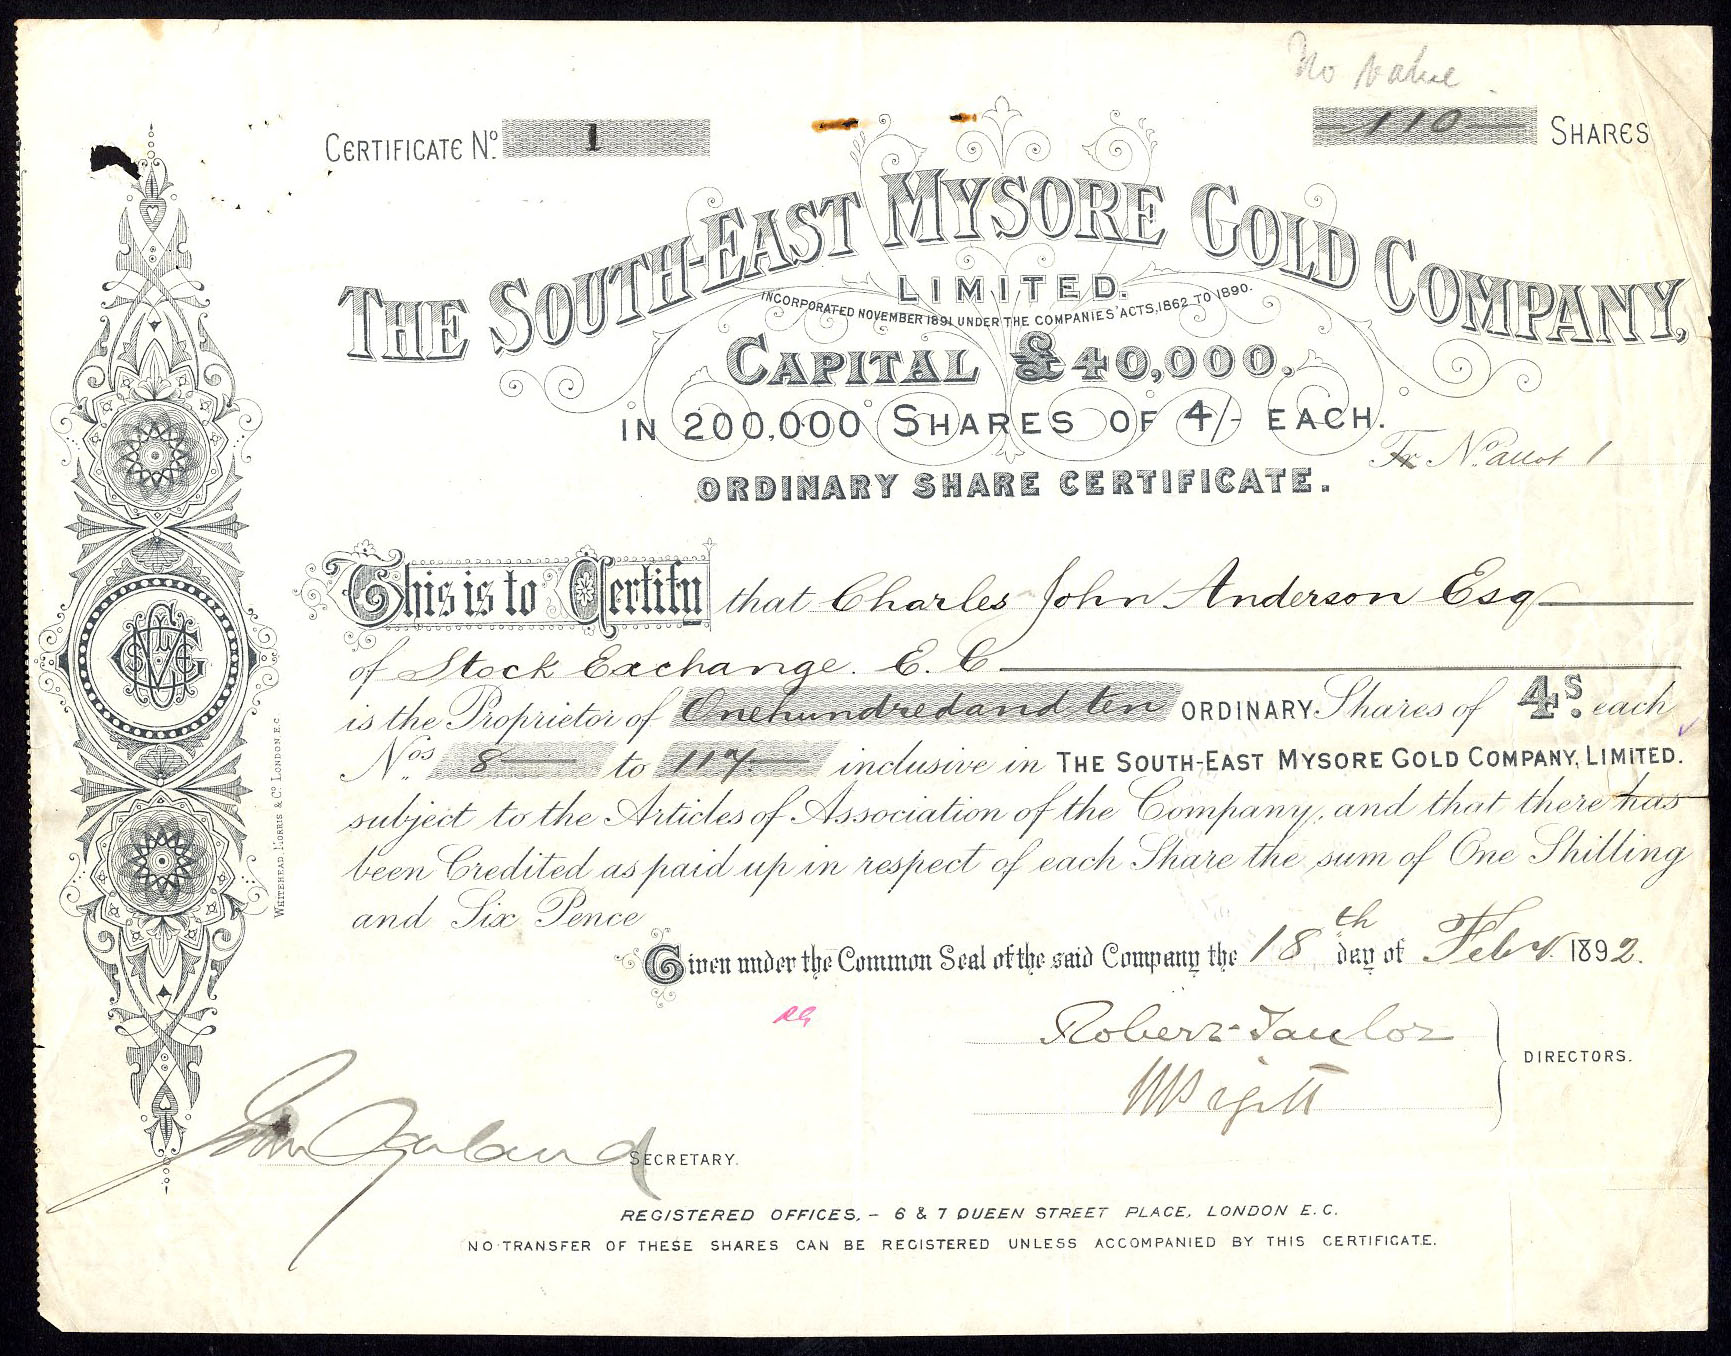 No value.
CERTIFICATE No. 1
—110— SHARES
THE SOUTH-EAST MYSORE GOLD COMPANY,
LIMITED.
INCORPORATED NOVEMBER 1891 UNDER THE COMPANIES' ACTS, 1862 TO 1890.
CAPITAL £40,000.
IN 200,000 SHARES OF 4/- EACH.
Fr No. allot 1
ORDINARY SHARE CERTIFICATE.
This is to Certify that Charles John Anderson Esq
of Stock Exchange. E. C
is the Proprietor of One hundred and ten ORDINARY Shares of 4s. each
Nos. 8— to 117— inclusive in THE SOUTH-EAST MYSORE GOLD COMPANY, LIMITED.
subject to the Articles of Association of the Company, and that there has
been Credited as paid up in respect of each Share the sum of One Shilling
and Six Pence
Given under the Common Seal of the said Company the 18th day of Feby. 1892.
Robert Taylor
DIRECTORS.
SECRETARY.
REGISTERED OFFICES,– 6 & 7 QUEEN STREET PLACE, LONDON E.C.
NO TRANSFER OF THESE SHARES CAN BE REGISTERED UNLESS ACCOMPANIED BY THIS CERTIFICATE.
WHITEHEAD, MORRIS & Co. LONDON, E.C.